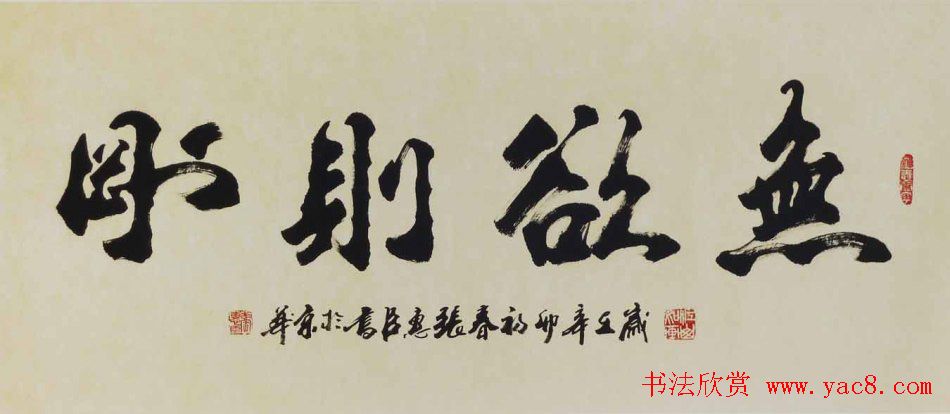 無欲則剛
歲在辛卯初春張惠臣書於京華
书法欣赏 www.yac8.com